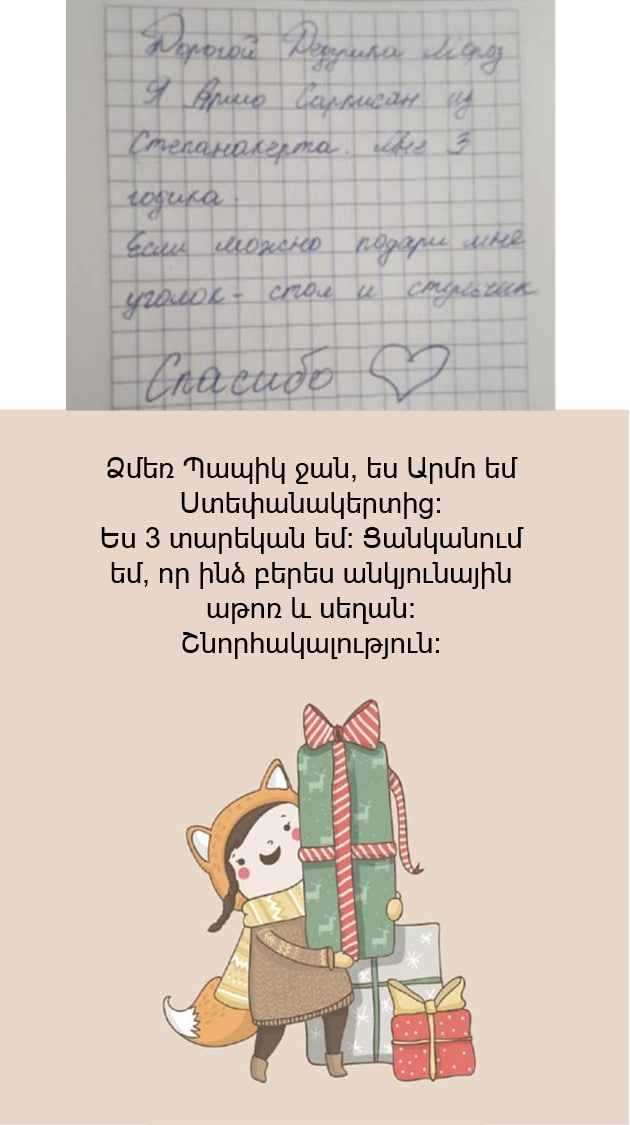 Дорогой Дедушка Мороз
Я Армо Саркисян из
Степанакерта. Мне 3
годика.
Если можно подари мне
уголок - стол и стульчик
Спасибо
Ձմեռ Պապիկ ջան, ես Արմո եմ
Ստեփանակերտից:
Ես 3 տարեկան եմ: Ցանկանում
եմ, որ ինձ բերես անկյունային
աթոռ և սեղան:
Շնորհակալություն: